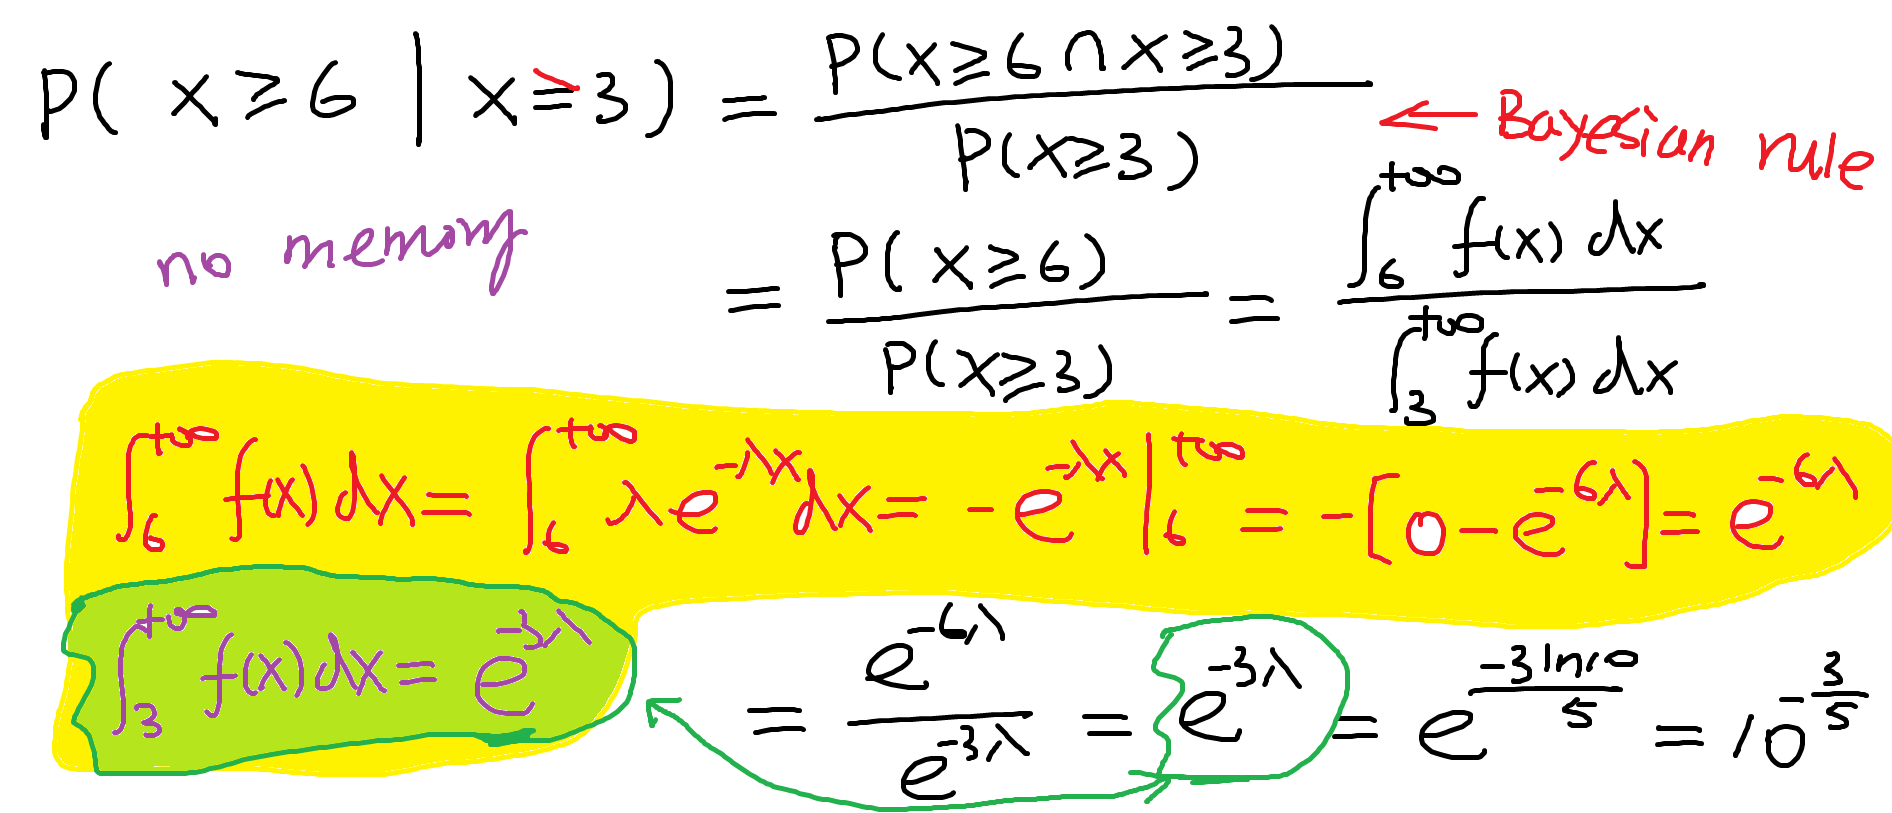 P( x ≥ 6 | x ≥ 3 ) = P(x ≥ 6 ∩ x ≥ 3) / P(x ≥ 3) ← Bayesian rule
no memory
= P( x ≥ 6) / P(x ≥ 3) = ∫_6^{+∞} f(x) dx / ∫_3^{+∞} f(x) dx
∫_6^{+∞} f(x) dx = ∫_6^{+∞} λe^{-λx} dx = -e^{-λx} |_6^{+∞} = -[0 - e^{-6λ}] = e^{-6λ}
∫_3^{+∞} f(x) dx = e^{-3λ}
= e^{-6λ} / e^{-3λ} = e^{-3λ} = e^{-3 ln10 / 5} = 10^{-3/5}